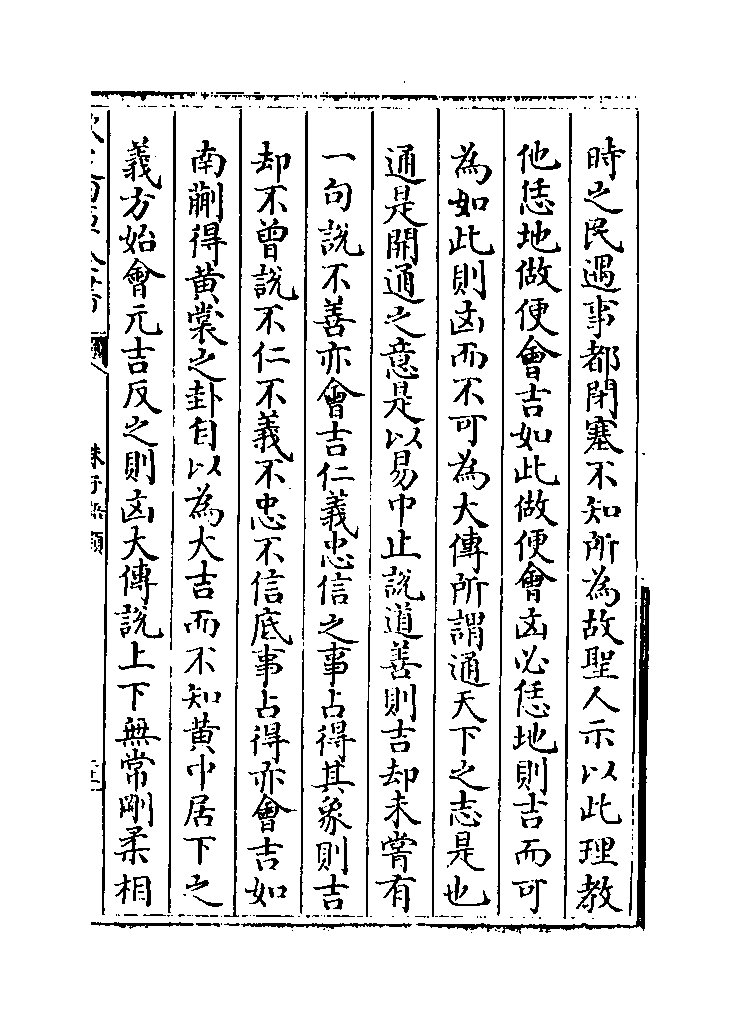 時之民遇事都閉塞不知所為故聖人示以此理教
他恁地做便會吉如此做便會凶必恁地則吉而可
為如此則凶而不可為大傳所謂通天下之志是也
通是開通之意是以易中止說道善則吉却未嘗有
一句說不善亦會吉仁義忠信之事占得其象則吉
却不曾說不仁不義不忠不信底事占得亦會吉如
南蒯得黄裳之卦自以為大吉而不知黄中居下之
義方始會元吉反之則凶大傳說上下無常剛柔相